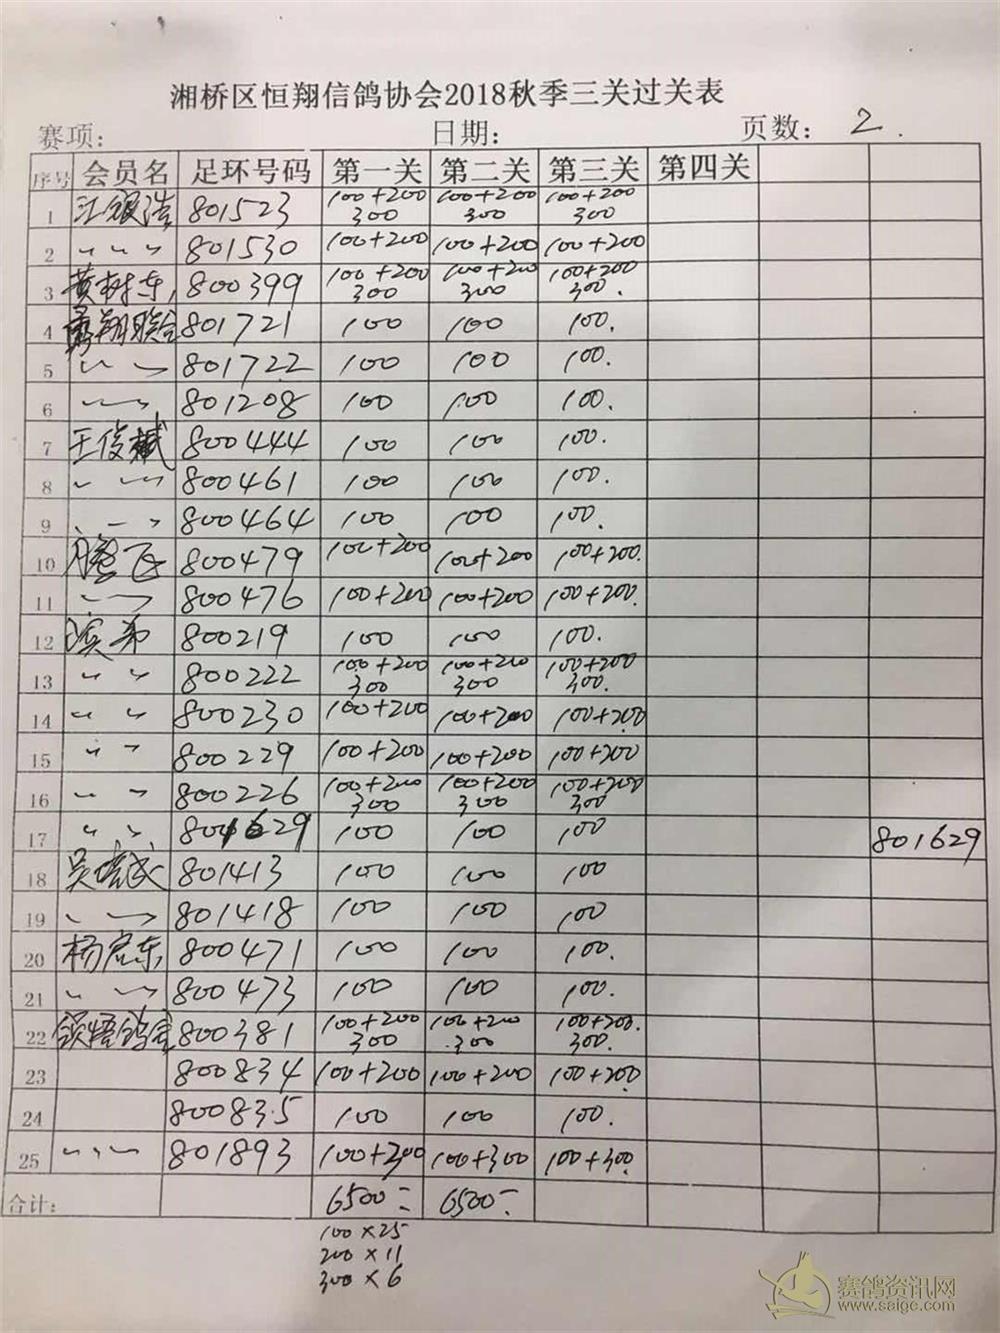 湘桥区恒翔信鸽协会2018秋季三关过关表
赛项: 日期: 页数: 2.
序号 会员名 足环号码 第一关 第二关 第三关 第四关
1 江银浩 801523 100+200 300 100+200 300 100+200 300
2 〃 〃 〃 801530 100+200 100+200 100+200
3 黄树东 800399 100+200 300 100+200 300 100+200 300.
4 翔联合 801721 100 100 100.
5 〃 〃 801722 100 100 100.
6 〃 〃 801208 100 100 100.
7 王俊斌 800444 100 100 100.
8 〃 〃 〃 800461 100 100 100.
9 〃 〃 〃 800464 100 100 100.
10 腾飞 800479 100+200 100+200 100+200.
11 〃 〃 800476 100+200 100+200 100+200.
12 滨弟 800219 100 100 100.
13 〃 〃 800222 100+200 300 100+200 300 100+200 300.
14 〃 〃 800230 100+200 100+200 100+200
15 〃 〃 800229 100+200 100+200 100+200
16 〃 〃 800226 100+200 300 100+200 300 100+200 300
17 〃 〃 801629 100 100 100 801629
18 吴武 801413 100 100 100
19 〃 〃 801418 100 100 100
20 杨启东 800471 100 100 100.
21 〃 〃 800473 100 100 100.
22 领悟鸽舍 800381 100+200 300 100+200 300 100+200. 300.
23 800834 100+200 100+200 100+200
24 800835 100 100 100.
25 〃 〃 〃 801893 100+300 100+300 100+300.
合计: 6500- 6500-
100×25
200×11
300×6
赛鸽资讯网
www.saige.com